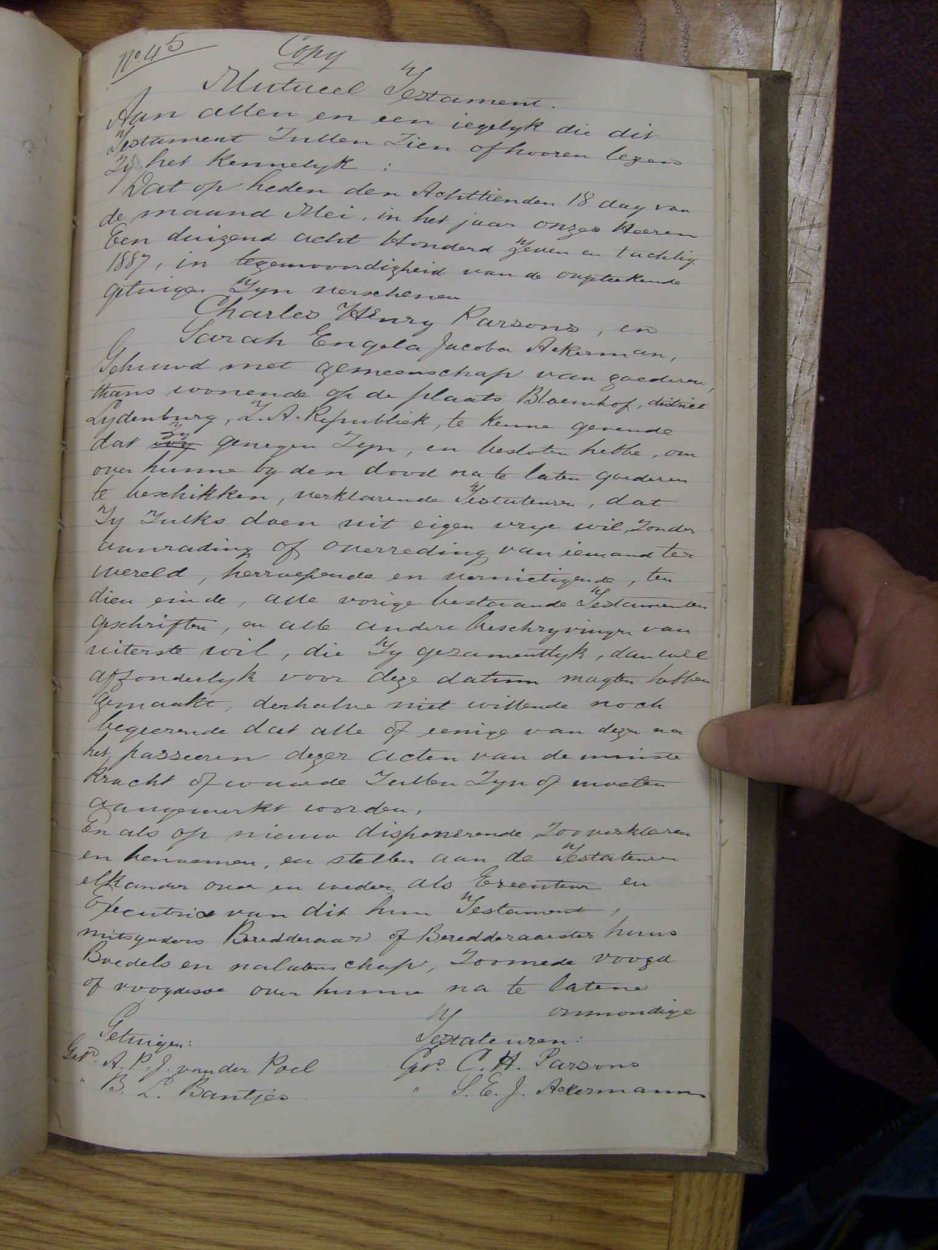 No 45
Copy
Mutueel Testament.
Aan allen en een iegelyk die dit
Testament Zullen Zien of hooren lezen
Zy het kennelyk :
Dat op heden den Achttienden 18 day van
de maand Mei, in het jaar onzes Heeren
Een duizend acht Honderd zeven en tachtig
1887, in tegenwoordigheid van de ongetekende
getuigen Zyn verschenen
Charles Henry Parsons, en
Sarah Engela Jacoba Ackerman,
Gehuwd met gemeenschap van goederen,
thans wonende op de plaats Bloemhof, district
Lydenburg, Z. A. Republiek, te kenne gevende
dat zy genegen Zyn, en besloten hebbe, om
over hunne by den dood na te laten goederen
te beschikken, verklarende Testateuren, dat
Zy Zulks doen uit eigen vrye wil, Zonder
aanrading of overreding van iemand ter
wereld, herroepende en vernietigende, ten
dien einde, alle vorige bestaande Testamenten
geschriften, en alle andere beschryvingen van
uiterste wil, die Zy gezamentlyk, dan wel
afzonderlyk voor deze datum magten hebben
gemaakt, derhalve niet willende noch
begeerende dat alle of eenige van dezen na
het passeeren dezer acten van de minste
kracht of waarde Zullen Zyn of moeten
aangemerkt worden.
En als op nieuw disponerende Zoo verklaren
en benoemen, en stellen aan de Testateuren
elkander over en weder als Executeur en
Executrice van dit hun Testament,
mitsgaders Beredderaar of Beredderaarster huns
Boedels en nalatenschap, Zoomede voogd
of voogdesse over hunne na te latene
onmondige
Getuigen:
Testateuren:
Getd. A. P. J. van der Poel
Getd. C. H. Parsons
" B. L. Bantjes
" S. E. J. Ackermann